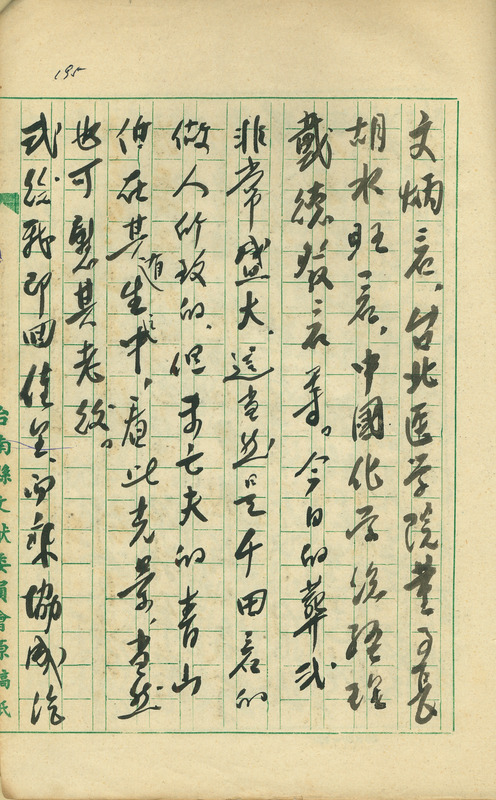 195
文炳君、台北医学院董事長
胡水旺君、中國化学総経理
戴德發君等。今日的葬式
非常盛大、這当然是千田君的
做人所致的、但未亡夫的青山
伯在其道生中、看此光景、当然
也可慰其老
式後我即回佳里、而乘協成汽
台南縣文献委員會原稿紙